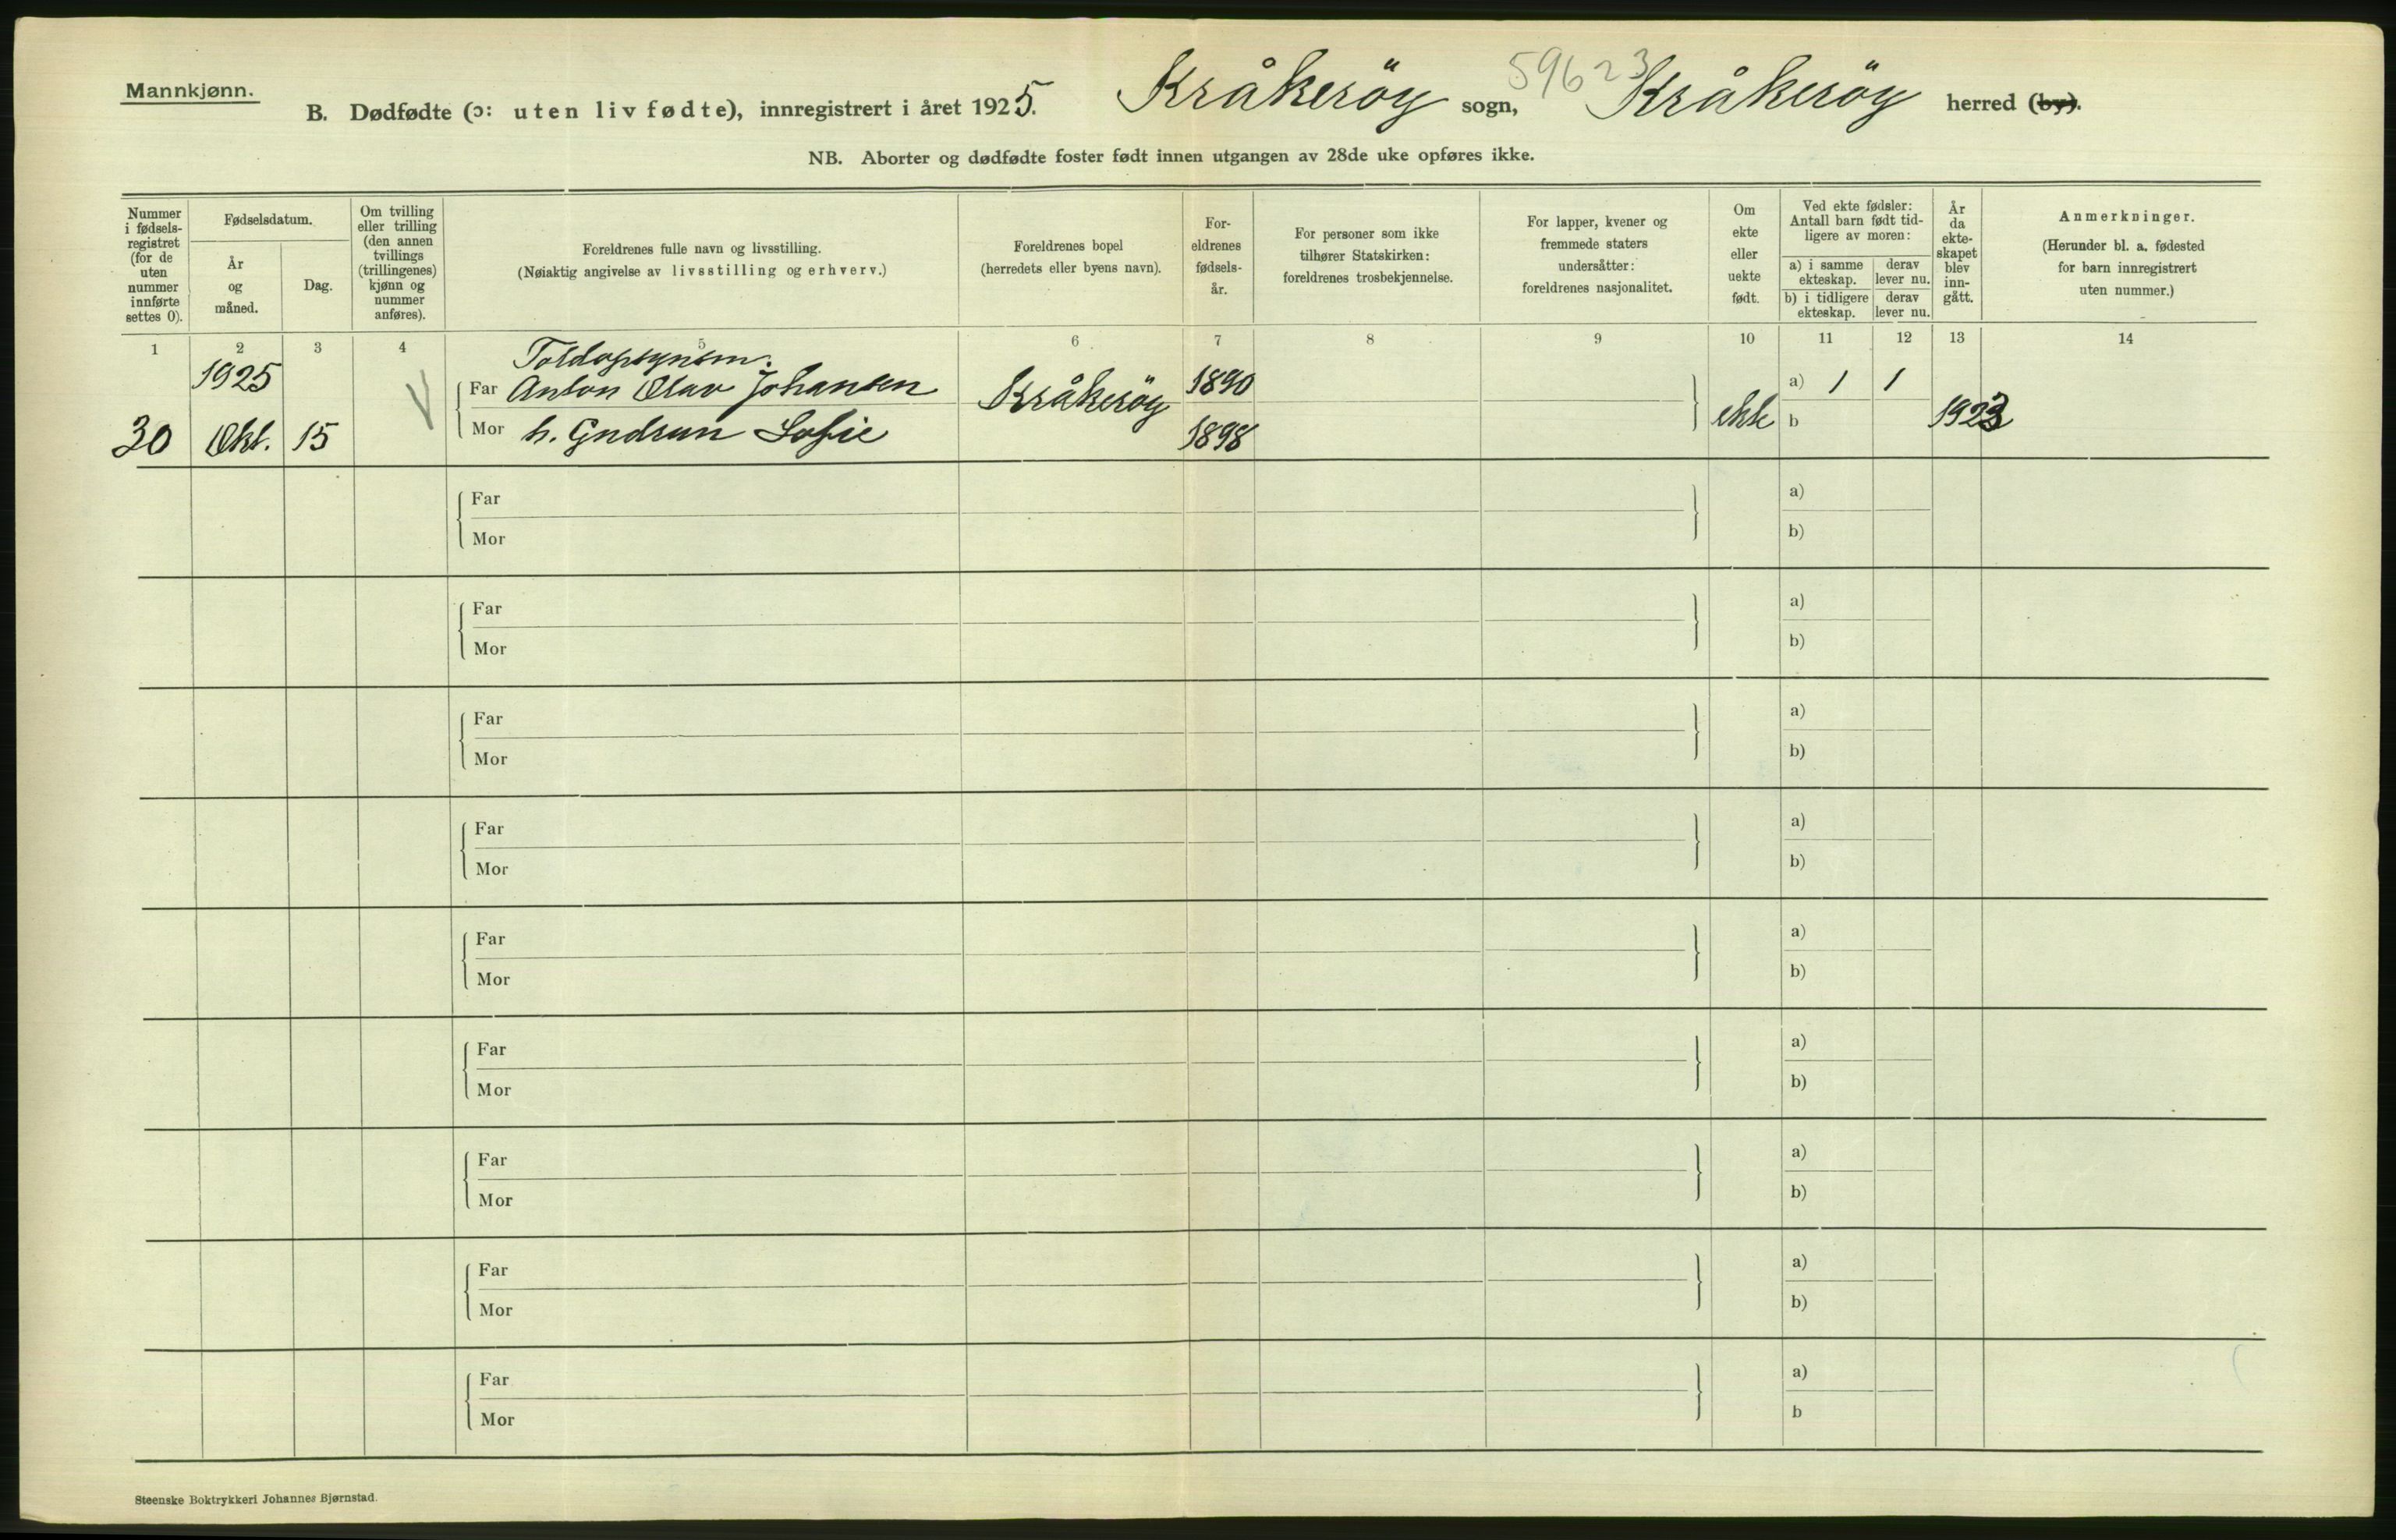 59623
Mannkjønn.
B. Dødfødte (ɔ: uten liv fødte), innregistrert i året 1925. Kråkeröy sogn, Kråkeröy herred (by).
NB. Aborter og dødfødte foster født innen utgangen av 28de uke opføres ikke.
Nummer
i fødsels-
registret
(for de
uten
nummer
innførte
settes 0).
Fødselsdatum.
År
og
måned.
Dag.
Om tvilling
eller trilling
(den annen
tvillings
(trillingenes)
kjønn og
nummer
anføres).
Foreldrenes fulle navn og livsstilling.
(Nøiaktig angivelse av livsstilling og erhverv.)
Foreldrenes bopel
(herredets eller byens navn).
For-
eldrenes
fødsels-
år.
For personer som ikke
tilhører Statskirken:
foreldrenes trosbekjennelse.
For lapper, kvener og
fremmede staters
undersåtter:
foreldrenes nasjonalitet.
Om
ekte
eller
uekte
født.
Ved ekte fødsler:
Antall barn født tid-
ligere av moren:
a) i samme
ekteskap.
derav
lever nu.
b) i tidligere
ekteskap.
derav
lever nu.
År
da
ekte-
skapet
blev
inn-
gått.
Anmerkninger.
(Herunder bl. a. fødested
for barn innregistrert
uten nummer.)
1 2 3 4 5 6 7 8 9 10 11 12 13 14
Toldopsynsm.
1925 Far Anton Olav Johansen Kråkeröy 1890 a) 1 1
30 Okt. 15 Mor h. Gudrun Sofie 1898 ekte b 1923
Far a)
Mor b)
Far a)
Mor b)
Far a)
Mor b)
Far a)
Mor b)
Far a)
Mor b)
Far a)
Mor b)
Far a)
Mor b)
Far a)
Mor b)
Far a)
Mor b
Steenske Boktrykkeri Johannes Bjørnstad.